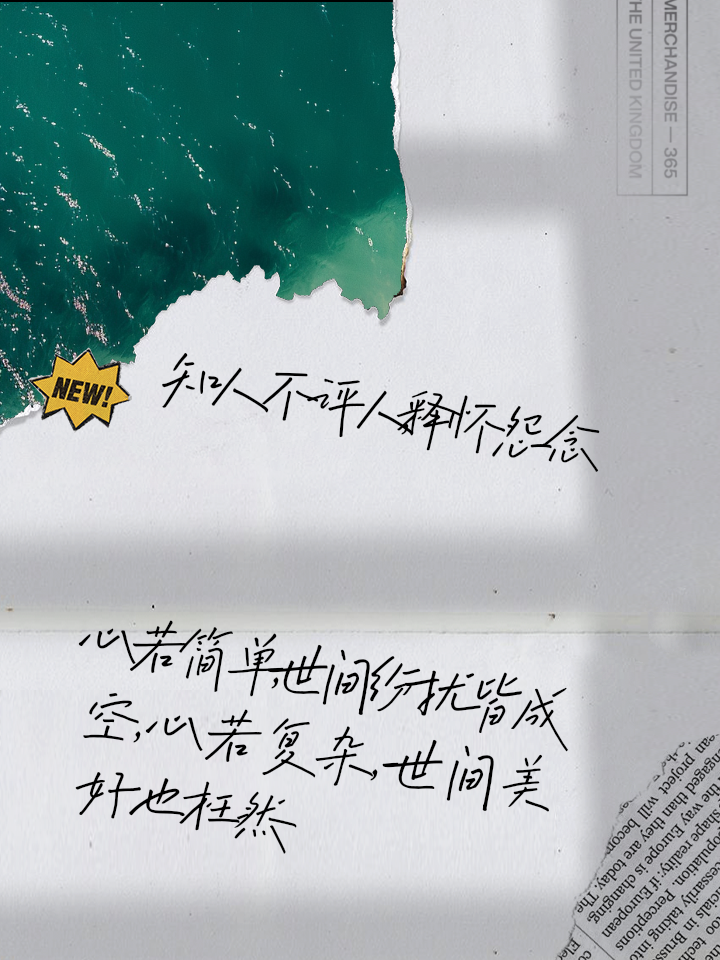 MERCHANDISE — 365
THE UNITED KINGDOM
NEW!
知人不评人释怀怨念
心若简单,世间纷扰皆成
空,心若复杂,世间美
好也枉然
engaged than they are today. The
project will becom
the way Europe is changing,
shape reality: if European
population. Perceptions
cessarily taking into